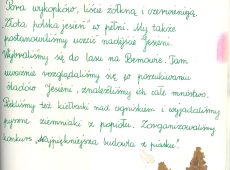 Pora wykopków, liście żółkną i czerwienieją.
Złota polska jesień w pełni. My także
postanowiliśmy uczcić nadejście Jesieni.
Wybraliśmy się do lasu na Bemowie. Tam
uważnie rozglądaliśmy się w poszukiwaniu
śladów Jesieni, znaleźliśmy ich całe mnóstwo.
Piekliśmy też kiełbaski nad ogniskiem i wyjadaliśmy
pyszne ziemniaki z popiołu. Zorganizowaliśmy
konkurs „Najpiękniejsza budowla z piasku".